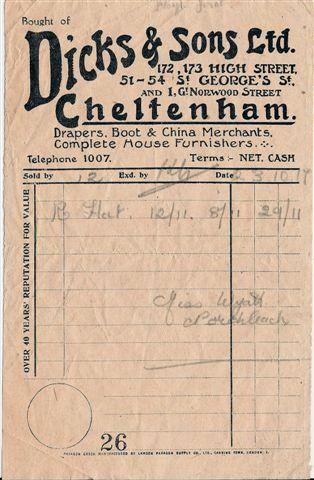 Bought of
Dicks & Sons Ltd.
172, 173 HIGH STREET,
51-54 St GEORGE'S St,
AND 1, Gt NORWOOD STREET
Cheltenham.
Drapers, Boot & China Merchants,
Complete House Furnishers.
Telephone 1007. Terms :- NET. CASH
Sold by 12 Exd. by Date
R Hat. 12/11. 8/11 29/11
Miss Wyatt
OVER 40 YEARS' REPUTATION FOR VALUE
26
PARAGON CHECK MANUFACTURED BY LAMSON PARAGON SUPPLY CO., LTD., CANNING TOWN, LONDON, E.